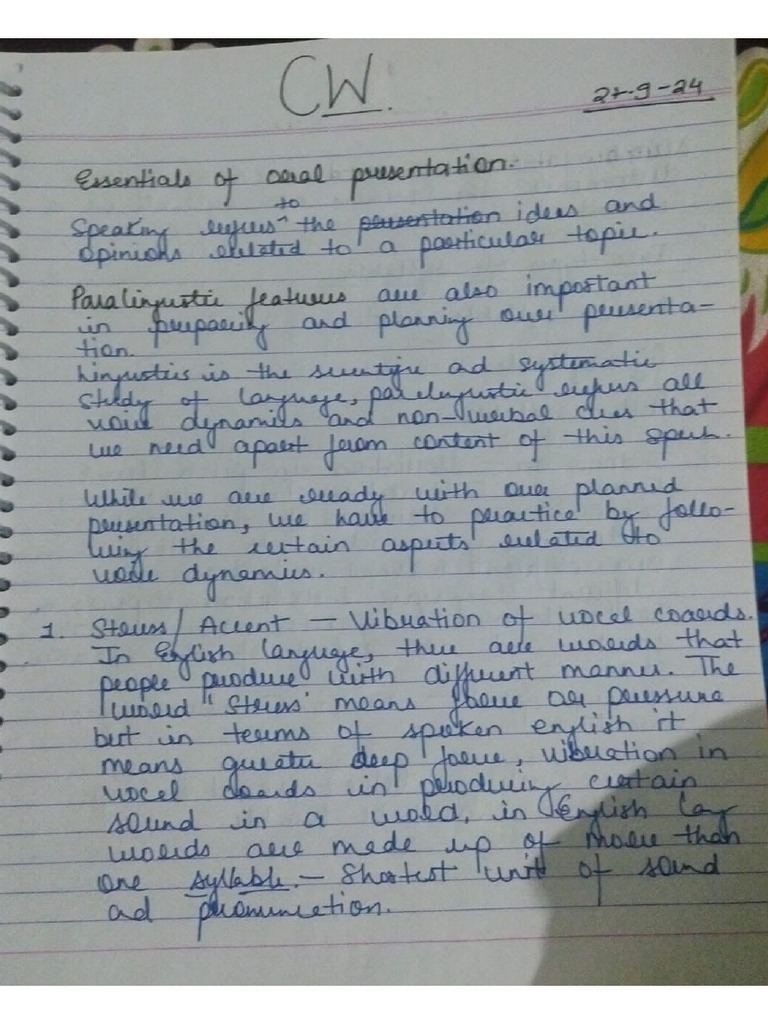 CW.
27-9-24
Essentials of oral presentation.
to
Speaking refers the presentation ideas and
opinions related to a particular topic.
Paralinguistic features are also important
in preparing and planning our presenta-
tion.
Linguistics is the scientific ad systematic
study of language, paralinguistic refers all
voice dynamics and non-verbal clues that
we need apart from content of this speech.
While we are ready with our planned
presentation, we have to practice by follo-
wing the certain aspects related to
voice dynamics.
1. Stress/ Accent — Vibration of vocel coards.
In English language, there are words that
people produce with different manner. The
word "Stress" means force or pressure
but in terms of spoken english it
means greater deep force, vibration in
vocel coards in producing certain
sound in a word, in English lang
words are made up of more than
one syllable. — Shortest unit of sound
ad pronunciation.